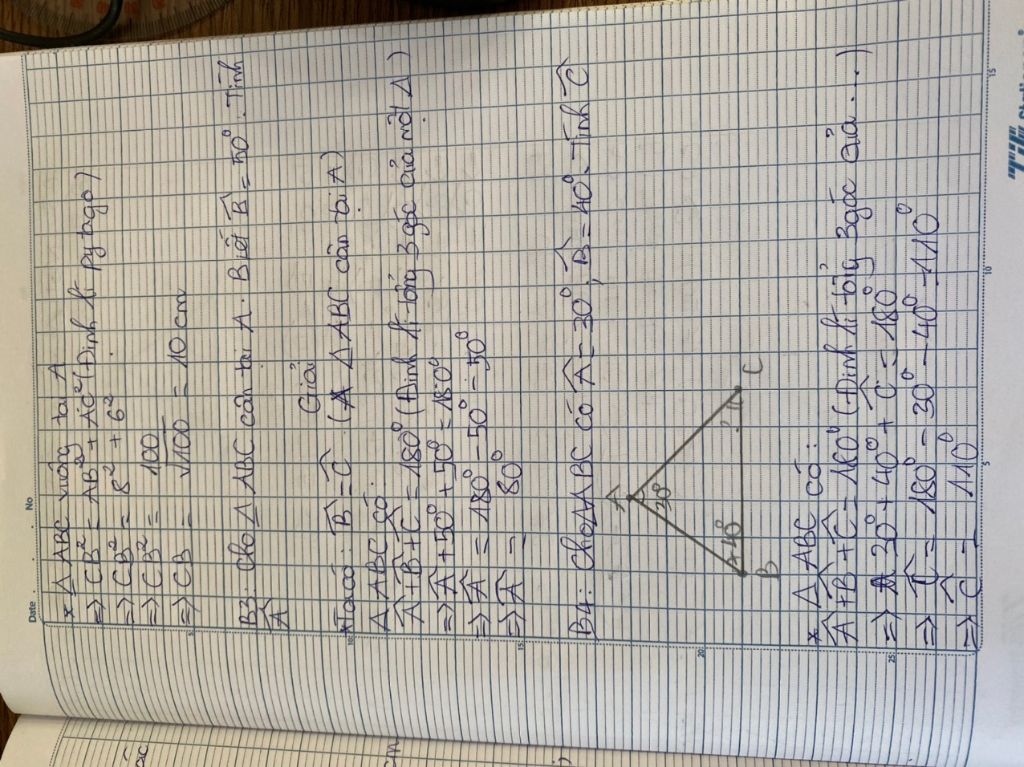 Date
No
* △ ABC vuông tại A
=> CB² = AB² + AC² (Định lí Pytago)
=> CB² = 8² + 6²
=> CB² = 100
=> CB = √100 = 10 cm
B3: Cho △ ABC cân tại A. Biết B̂ = 50°. Tính
Â
Giải
Ta có: B̂ = Ĉ (△ ABC cân tại A)
△ ABC có:
 + B̂ + Ĉ = 180° (Định lí tổng 3 góc của một △)
=>  + 50° + 50° = 180°
=>  = 180° - 50° - 50°
=>  = 80°
B4: Cho △ABC có  = 30°, B̂ = 40°. Tính Ĉ
A
30°
40°
?
B
C
* △ ABC có:
 + B̂ + Ĉ = 180° (Định lí tổng 3 góc của...)
=> 30° + 40° + Ĉ = 180°
=> Ĉ = 180° - 30° - 40° = 110°
=> Ĉ = 110°
5
10
15
20
25
5
10
15